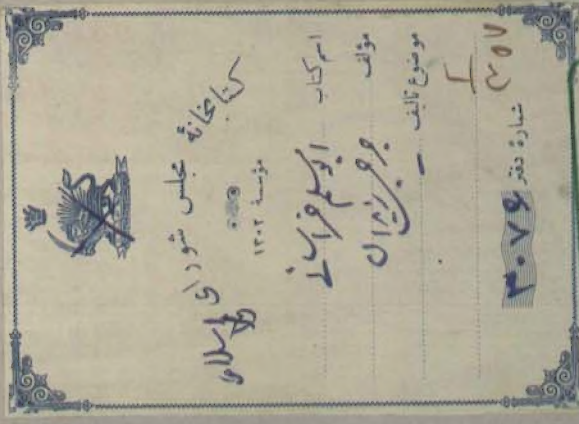 کتابخانهٔ مجلس شورای اسلامی
مؤسسه ۱۳۰۲
اسم کتاب ابومسلم خراسانی
مؤلف جرجی زیدان
موضوع تألیف
شمارهٔ دفتر ۳۰۷۶